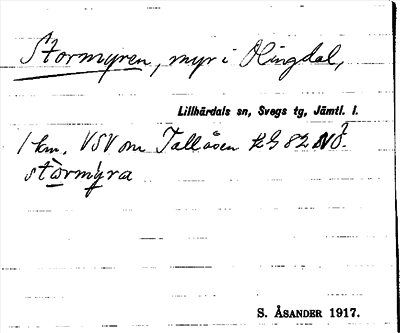 Stormyren, myr i Olingdal,
Lillhärdals sn, Svegs tg, Jämtl. l.
1 km. VSV om Tallåsen 82 NÖ.
stòrmy̆ra
S. ÅSANDER 1917.